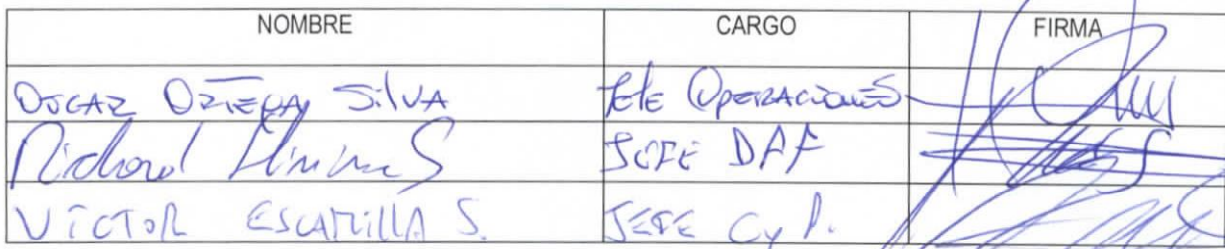 NOMBRE CARGO FIRMA
OSCAR ORTEGA SILVA Jefe OPERACIONES
Richard S JEFE DAF
VICTOR ESCAMILLA S. JEFE C y P.